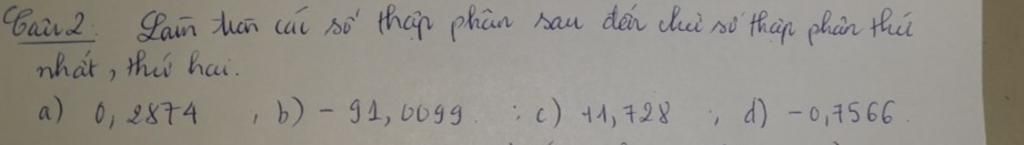 Bài 2. Làm tròn các số thập phân sau đến chữ số thập phân thứ
nhất, thứ hai.
a) 0,2874 , b) - 91,0099 ; c) +1,728 ; d) -0,7566.